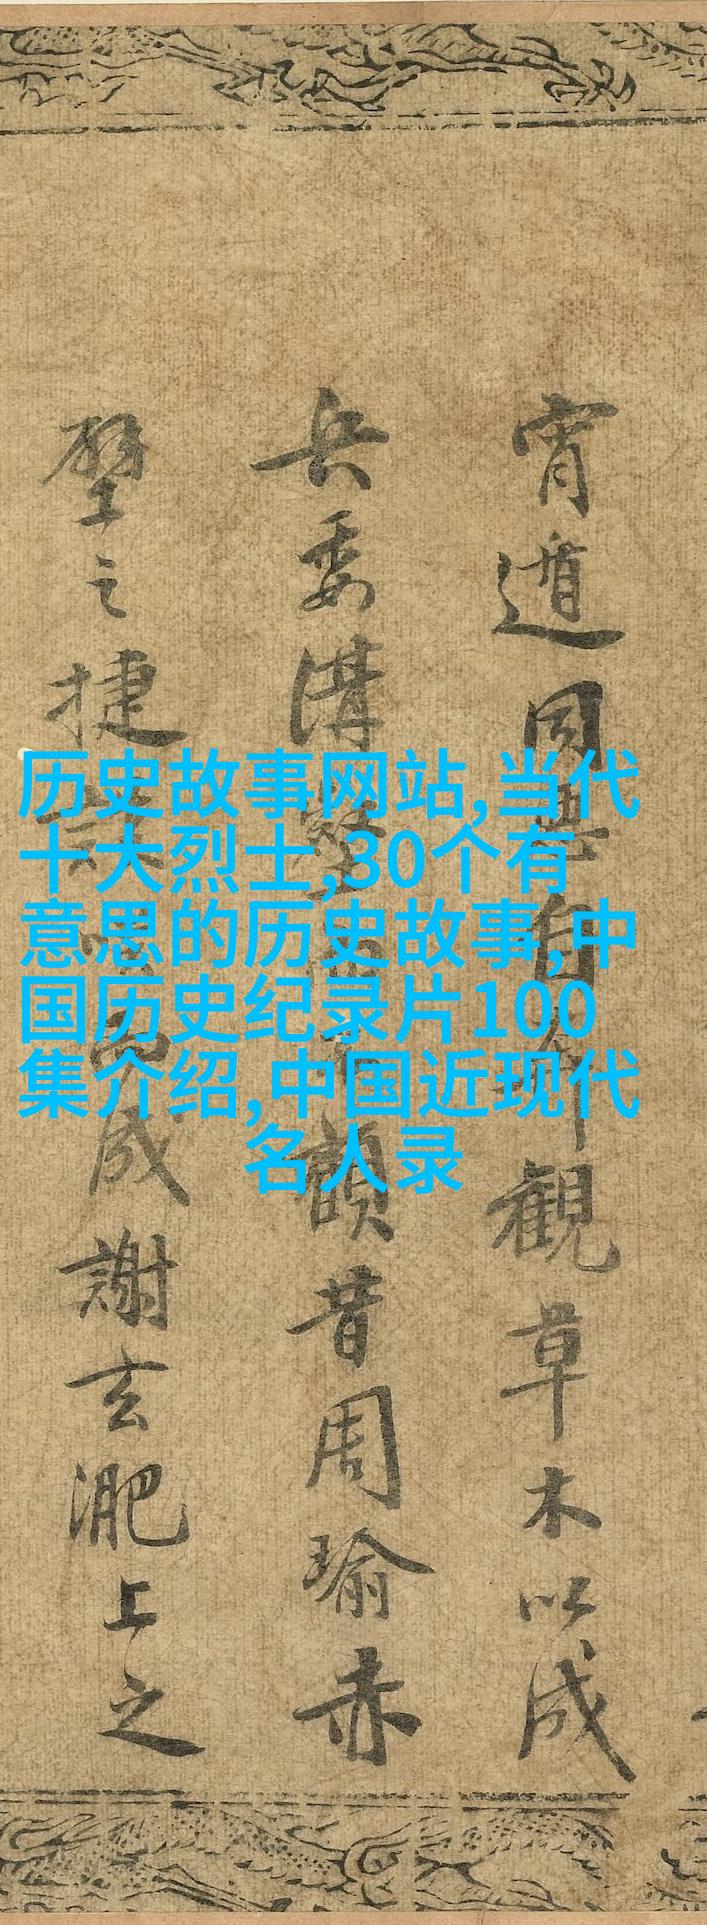 历史故事网站,当代
十大烈士,30个有
意思的历史故事,中
国历史纪录片100
集介绍,中国近现代
名人录
宵遁同惡自觀草木以成
兵委溝壑顧昔周瑜赤
壁之捷談而成謝玄淝上之